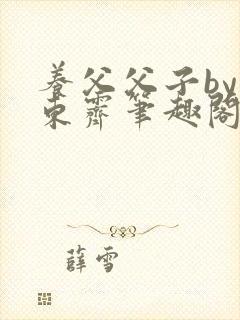 养父父子by
东霁笔趣阁
薛雪